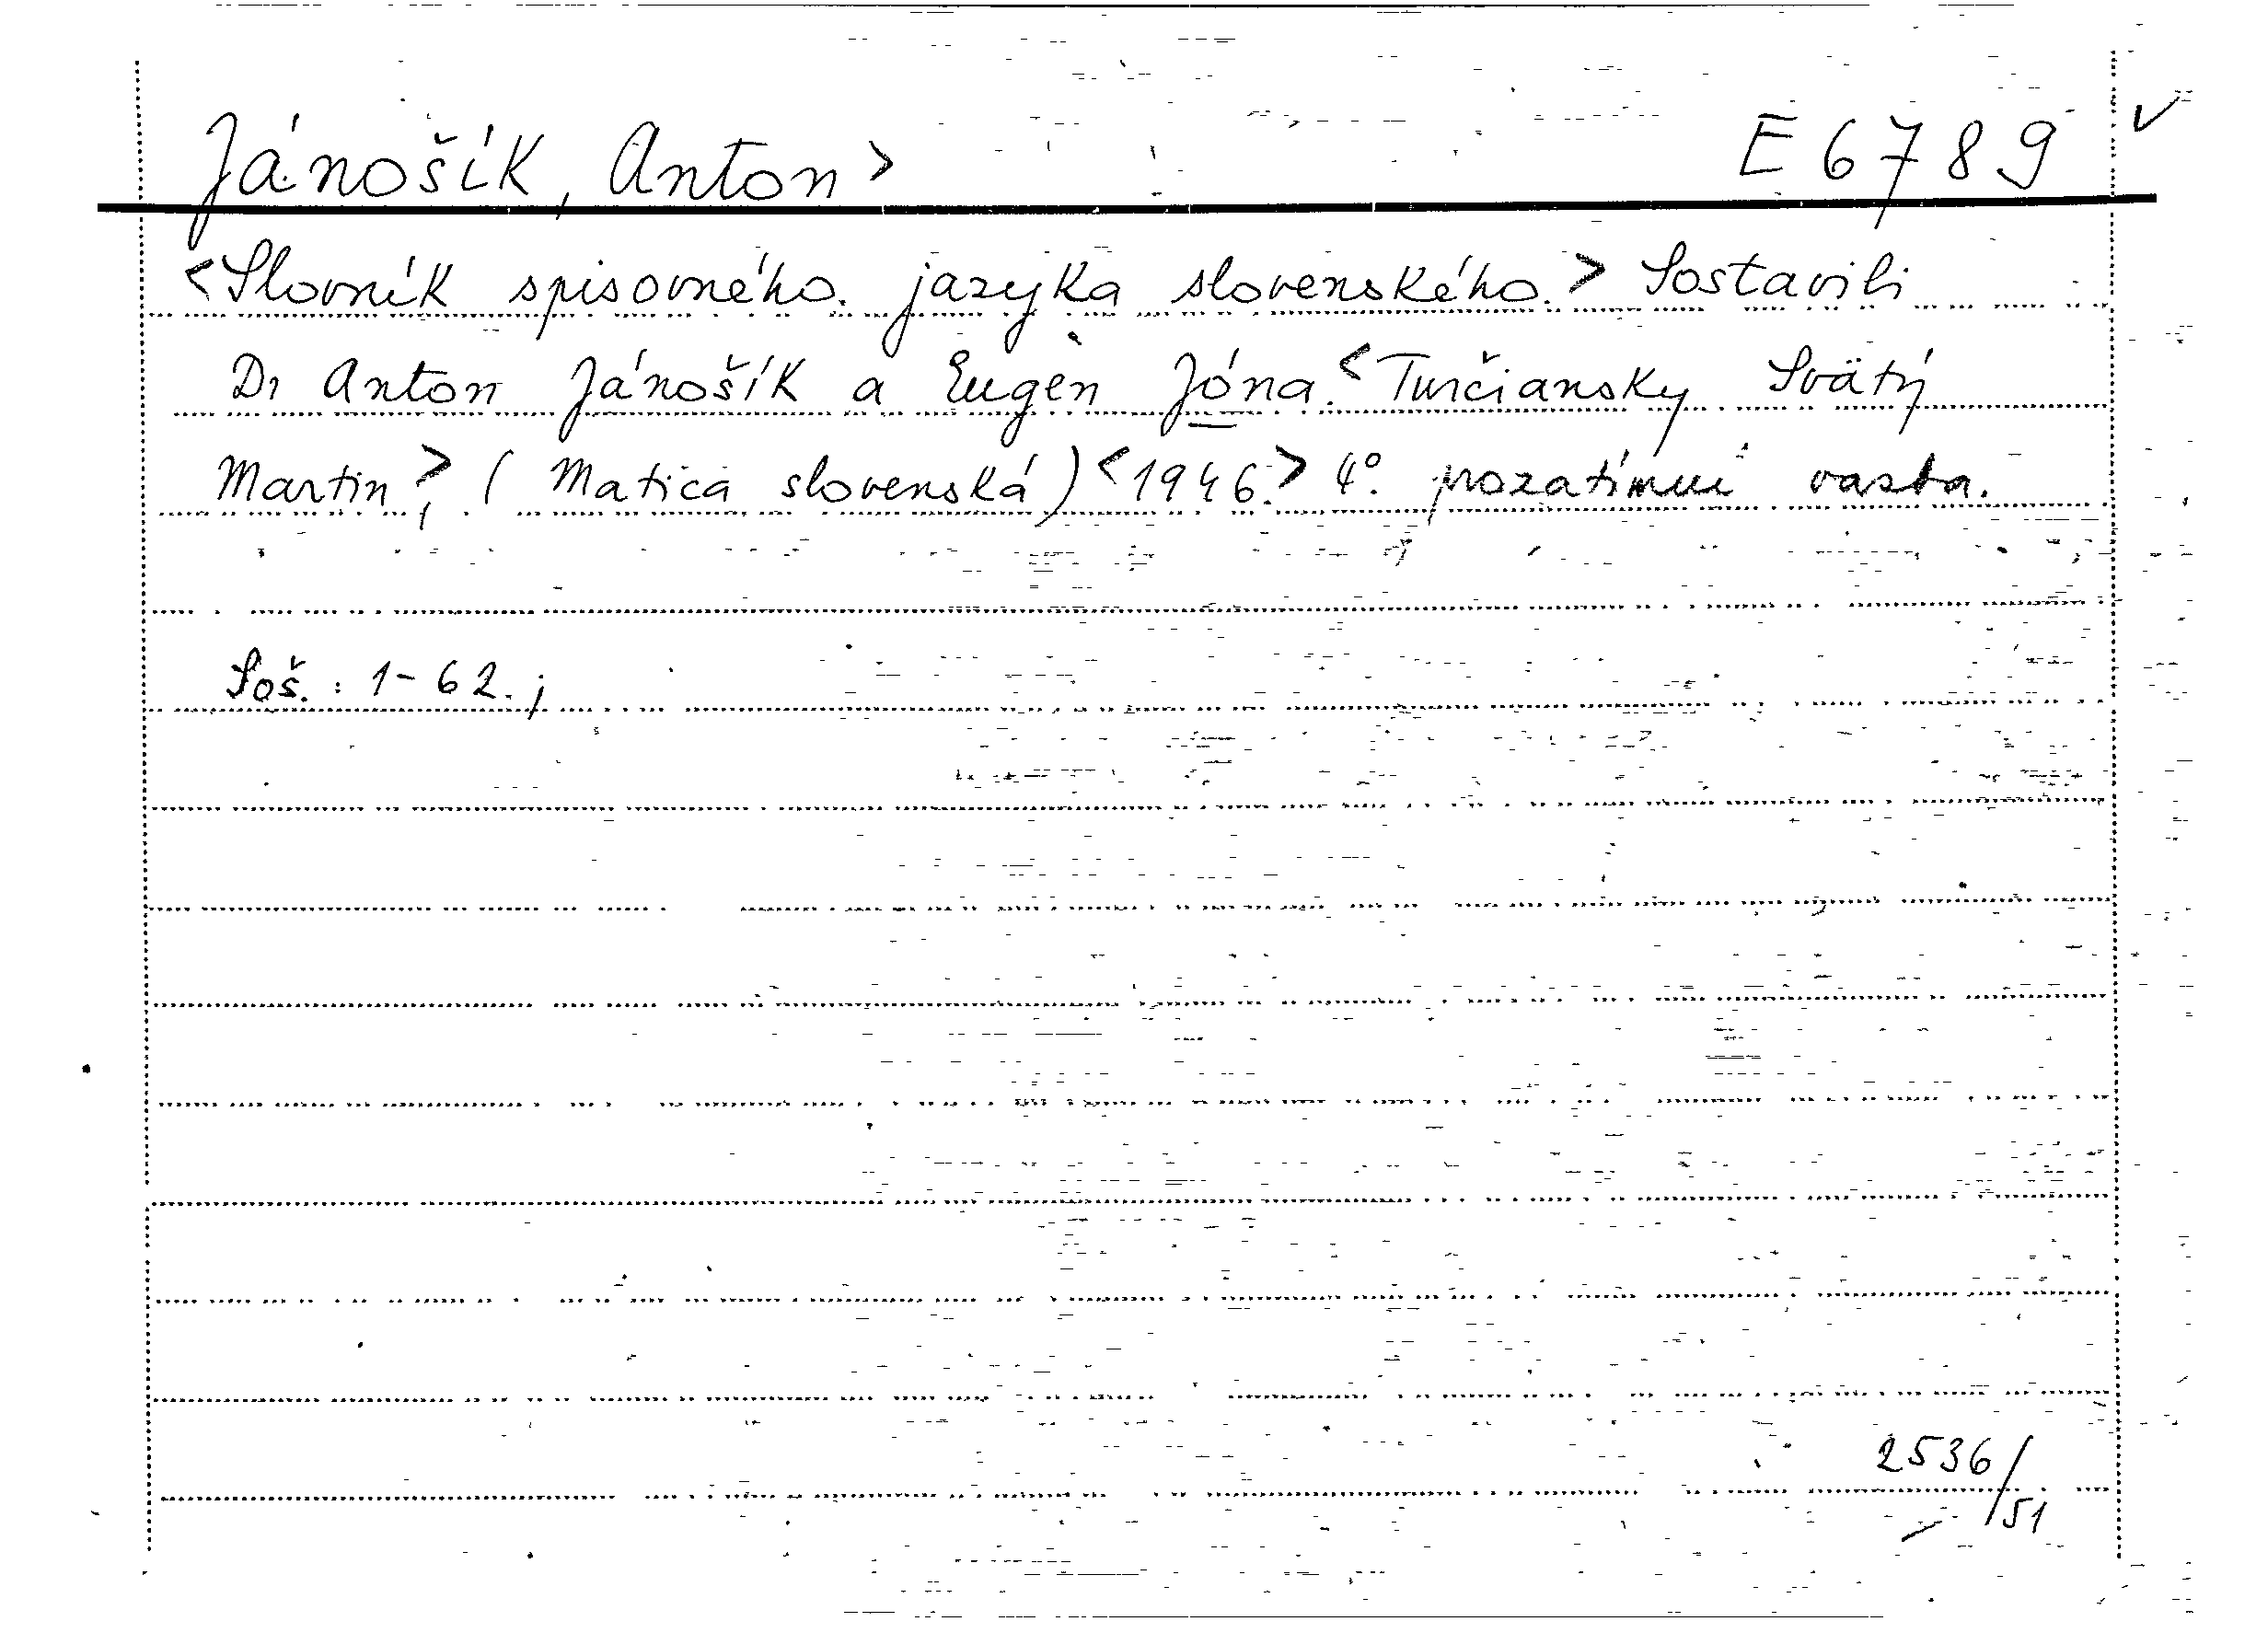 Jánošík, Anton > E 6789 v
<Slovník spisovného jazyka slovenského.> Sostavili
Dr Anton Jánošík a Eugen Jóna. <Turčiansky Svätý
Martin,> (Matica slovenská) <1946.> 4°. prozatímní vazba.
Soš.: 1-62.;
2536/
51